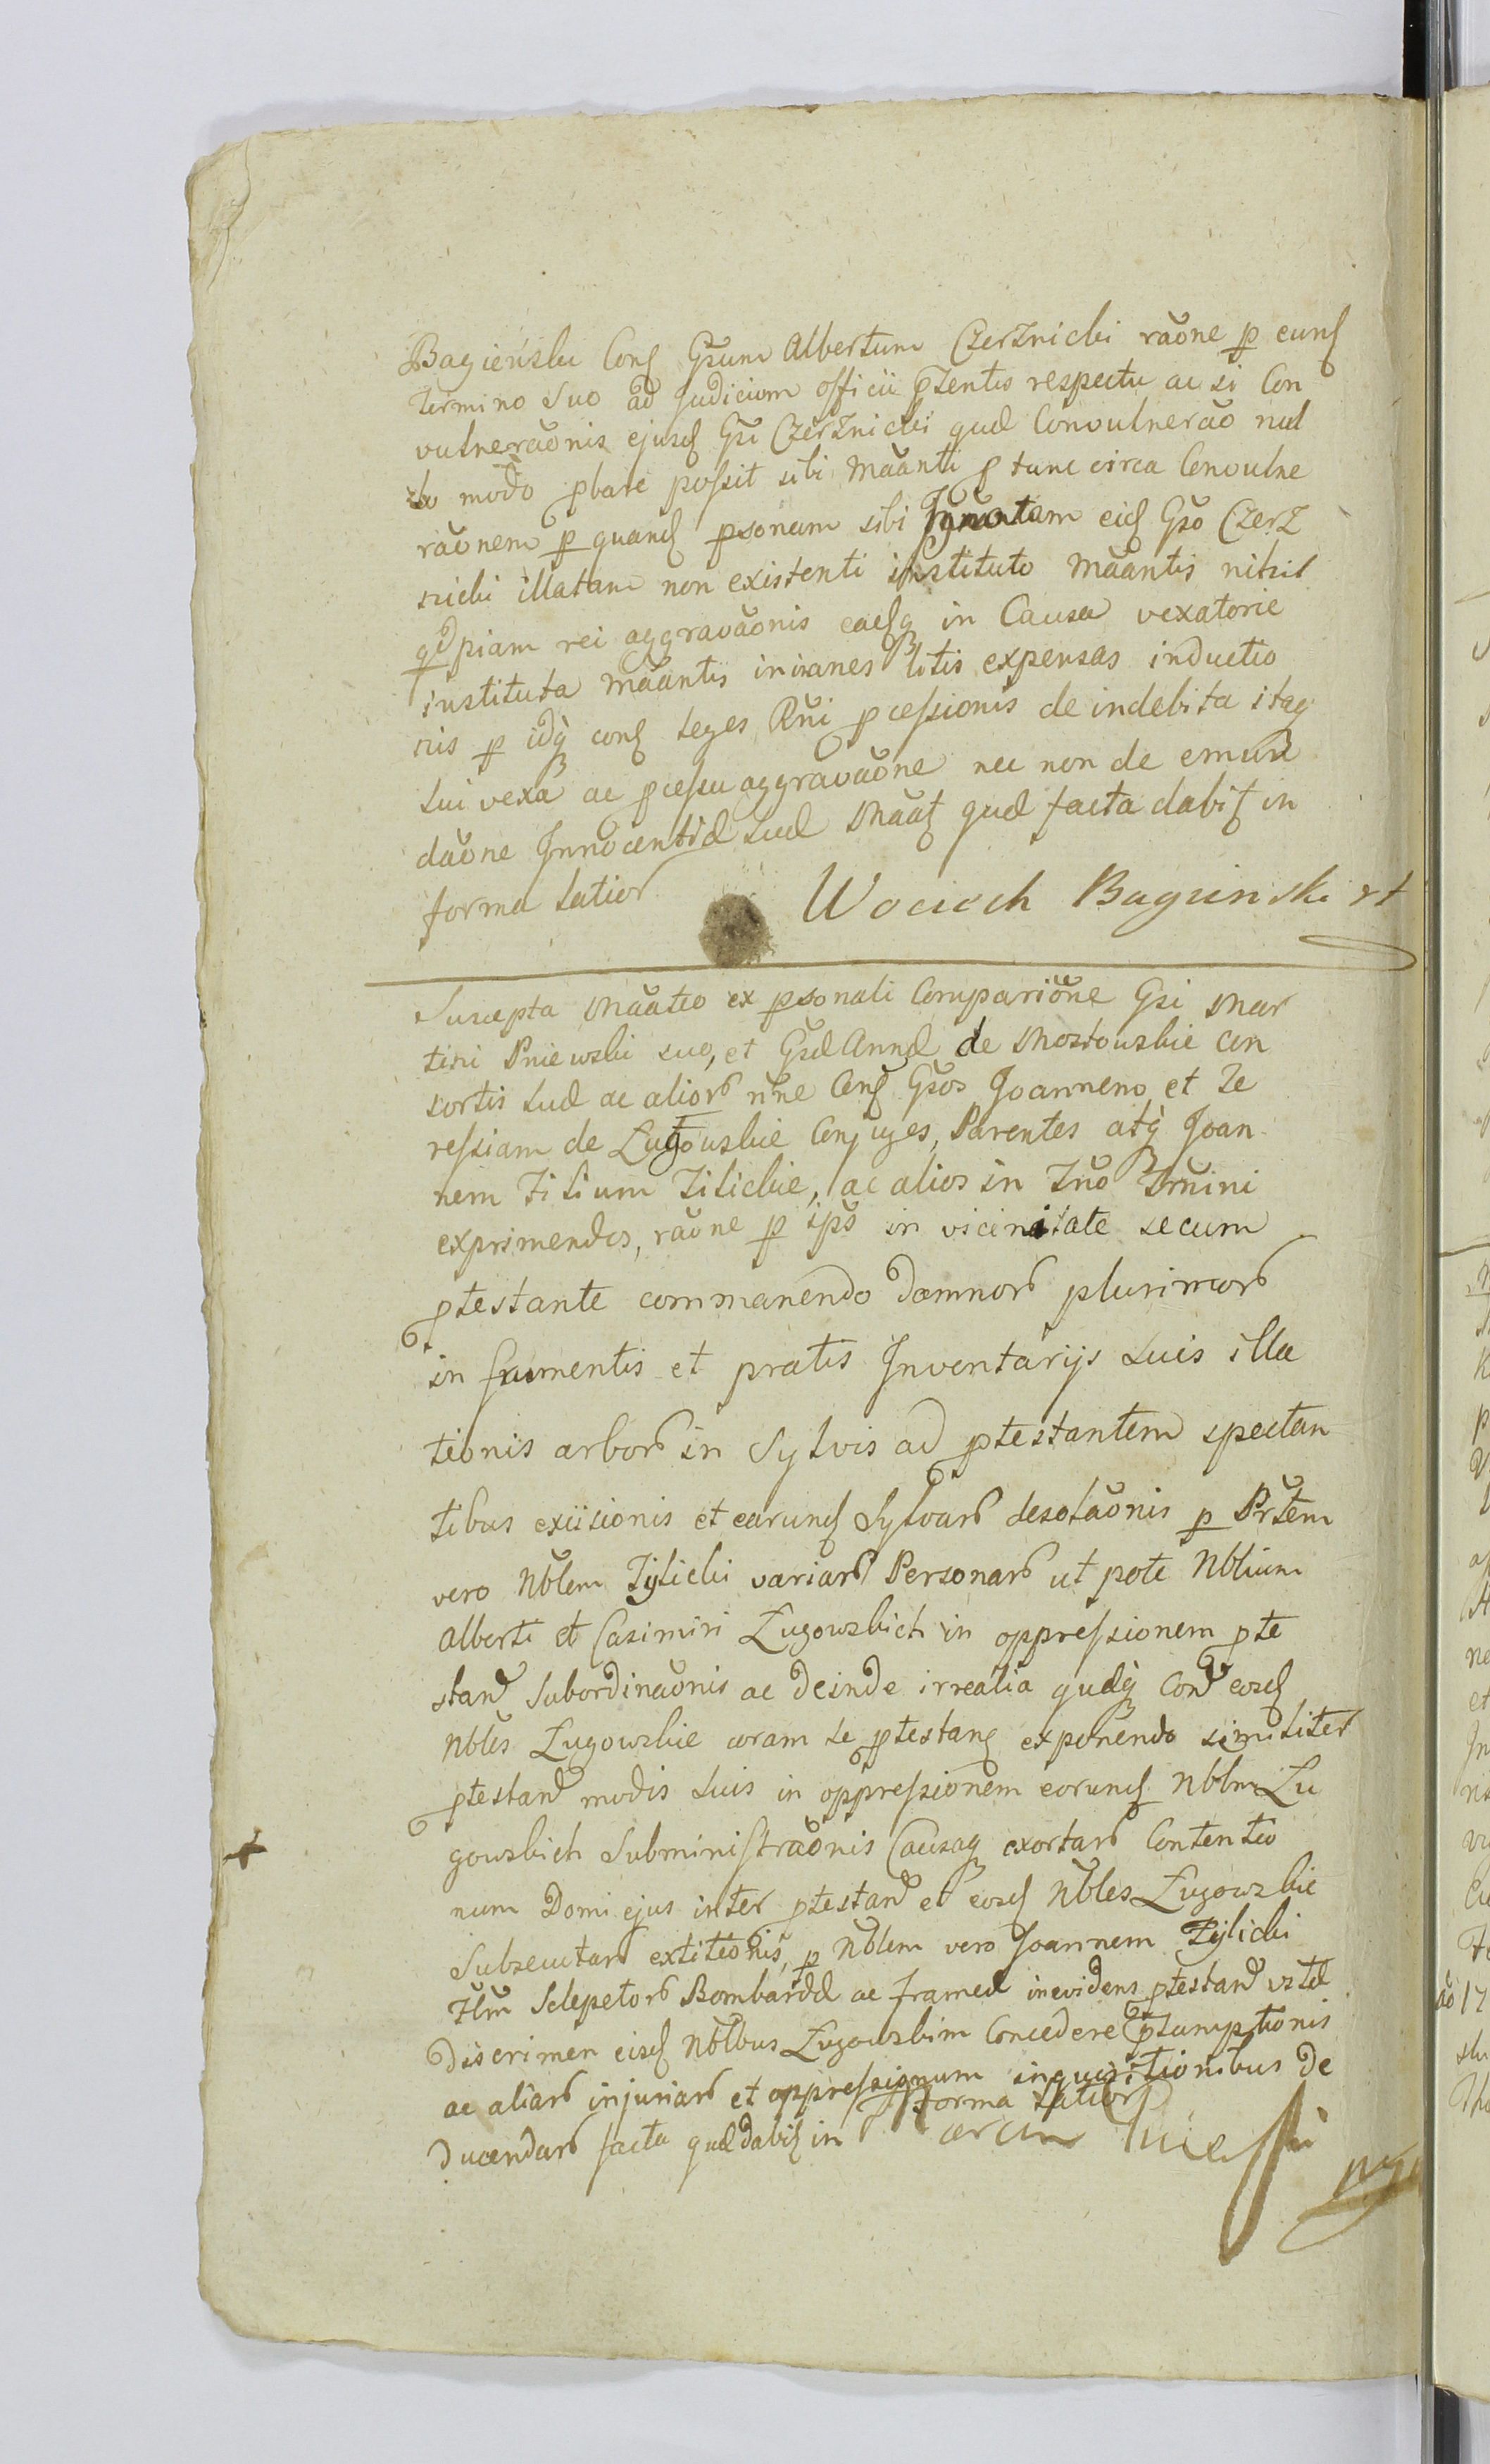 Bagieński Conq Gsum Albertum Czerznicki raõne p eunq
termino suo ad Judicium officii pzentis respectu ac si Con
vulneraõnis ejusq Gsi Czerznicki quæ Convulneraõ nul
lo modo pbari possit sibi Maanti p tunc circa Convulne
raõnem p quanq psonam sibi Ignotam eiq Gso Czerz
nicki illatam non existenti instituto Maantis nihil
qdpiam rei aggravaõnis eaqq in Causa vexatorie
instituta Maantis in inanes litis expensas inductio
nis p idq conq leges Rni pcessionis de indebita itaq
sui vexa ac pcessu aggravaõne nec non de emun
daõne Innocentiæ suæ Maaq quæ facta dabiq in
forma latior
Wociech Baguinski
Suscepta Maatio ex psonali Compariõne Gsi Mar
tini Pniewski suo, et Gsæ Annæ de Mostowskie con
sortis suæ ac alior nne Conq Gsos Joannem et Te
ressiam de Ługowskie Conjuges, Parentes atq Joan
nem Filium Zilickie, ac alios in Tno Trmini
exprimendos, raõne p ipso in vicinitate secum
ptestante commanendo damnor plurimor
in frumentis et pratis Inventarijs suis illa
tionis arbor in Sylvis ad ptestantem spectan
tibus exiisionis et earunq Sylvar desolaõnis p Prtem
vero Nblem Zylicki variar Personar ut pote Nblium
Alberti et Casimiri Ługowskich in oppressionem pte
stan Subordinaõnis ac deinde irrealia quæq Con eosq
Nbles Ługowskie coram se ptestanq exponendo similiter
ptestan modis suis in oppressionem eorunq Nblm Łu
gowskich Subministraõnis Causaq exortar Contentio
num Domi ejus inter ptestan et eosq Nbles Ługowskie
Subsecutar extitionis, p Nblem vero Joannem Zylicki
Sclepetor Bombardæ ac frameæ in evidens ptestan vitæ
discrimen eisq Nblbus Ługowskim Concedere psumptionis
ac aliar injuriar et oppressionum inquisitionibus de
ducendar facta quæ dabiq in forma latior